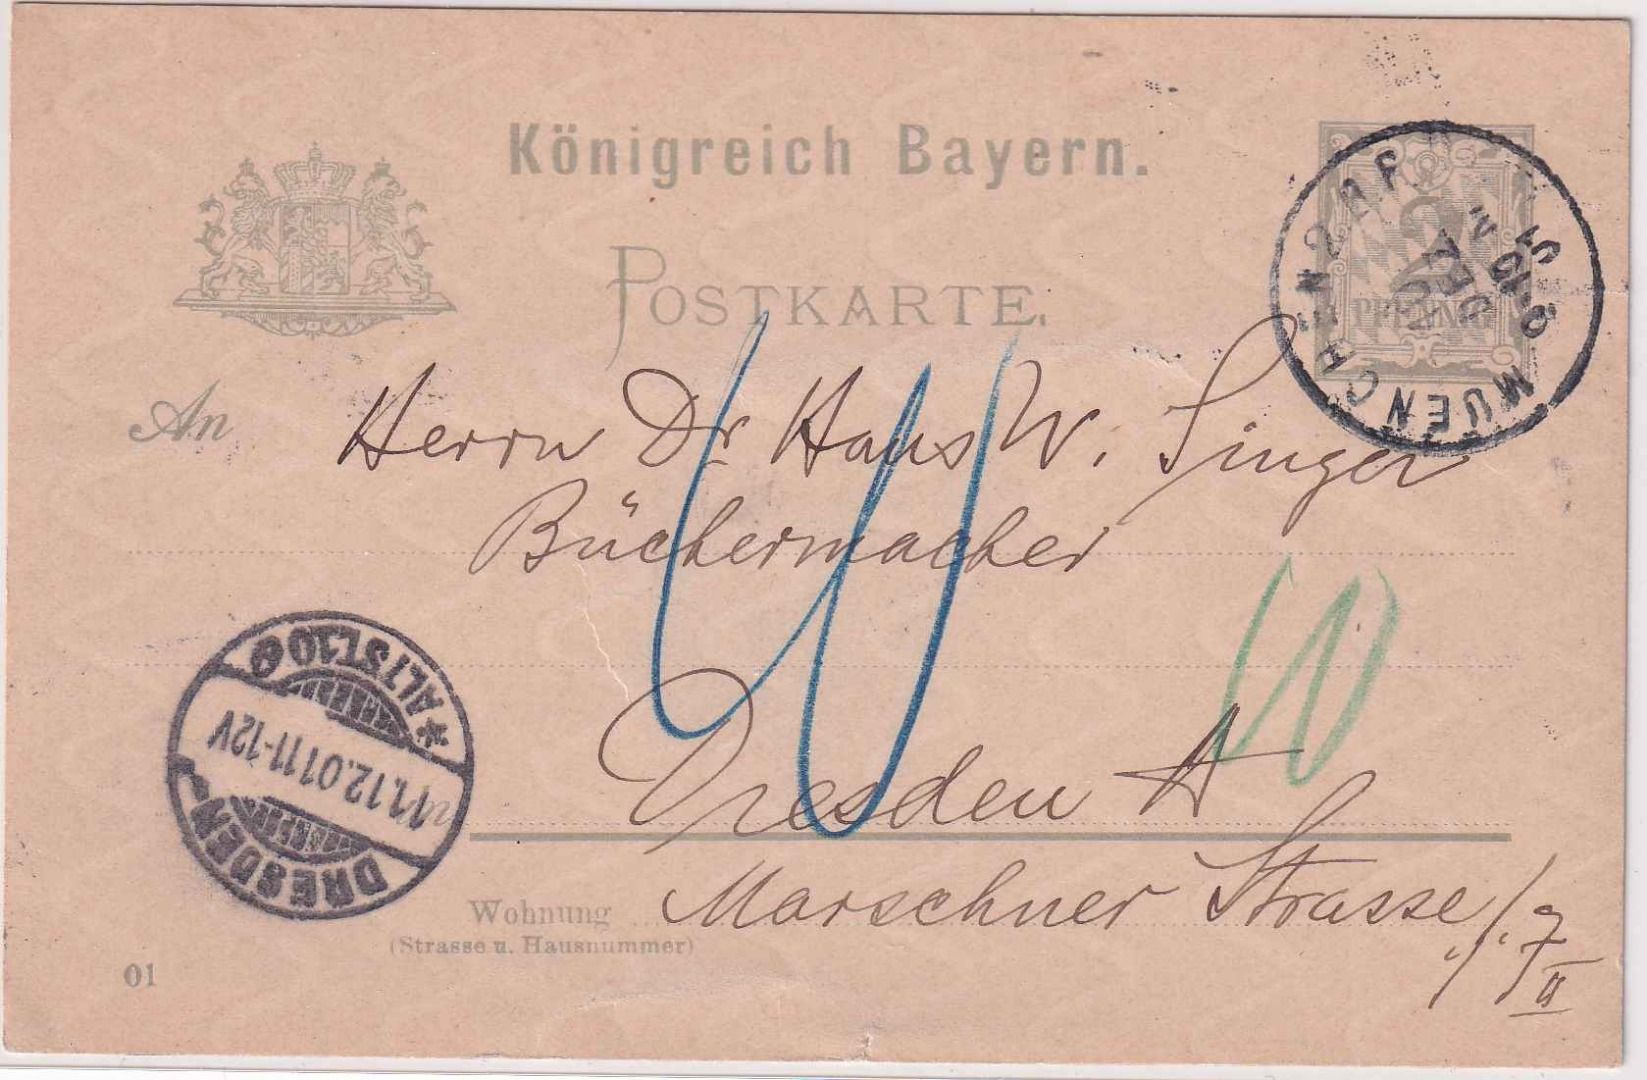 Königreich Bayern.
POSTKARTE.
2
PFENNIG
MUENCHEN 2 
DEZ
An Herrn Dr Hans W. Singer
Büchermacher
10
10
DRESDEN
11.12.01 11-12V
* ALTST. 10
Dresden A
Wohnung Marschner Strasse
(Strasse u. Hausnummer)
II
01